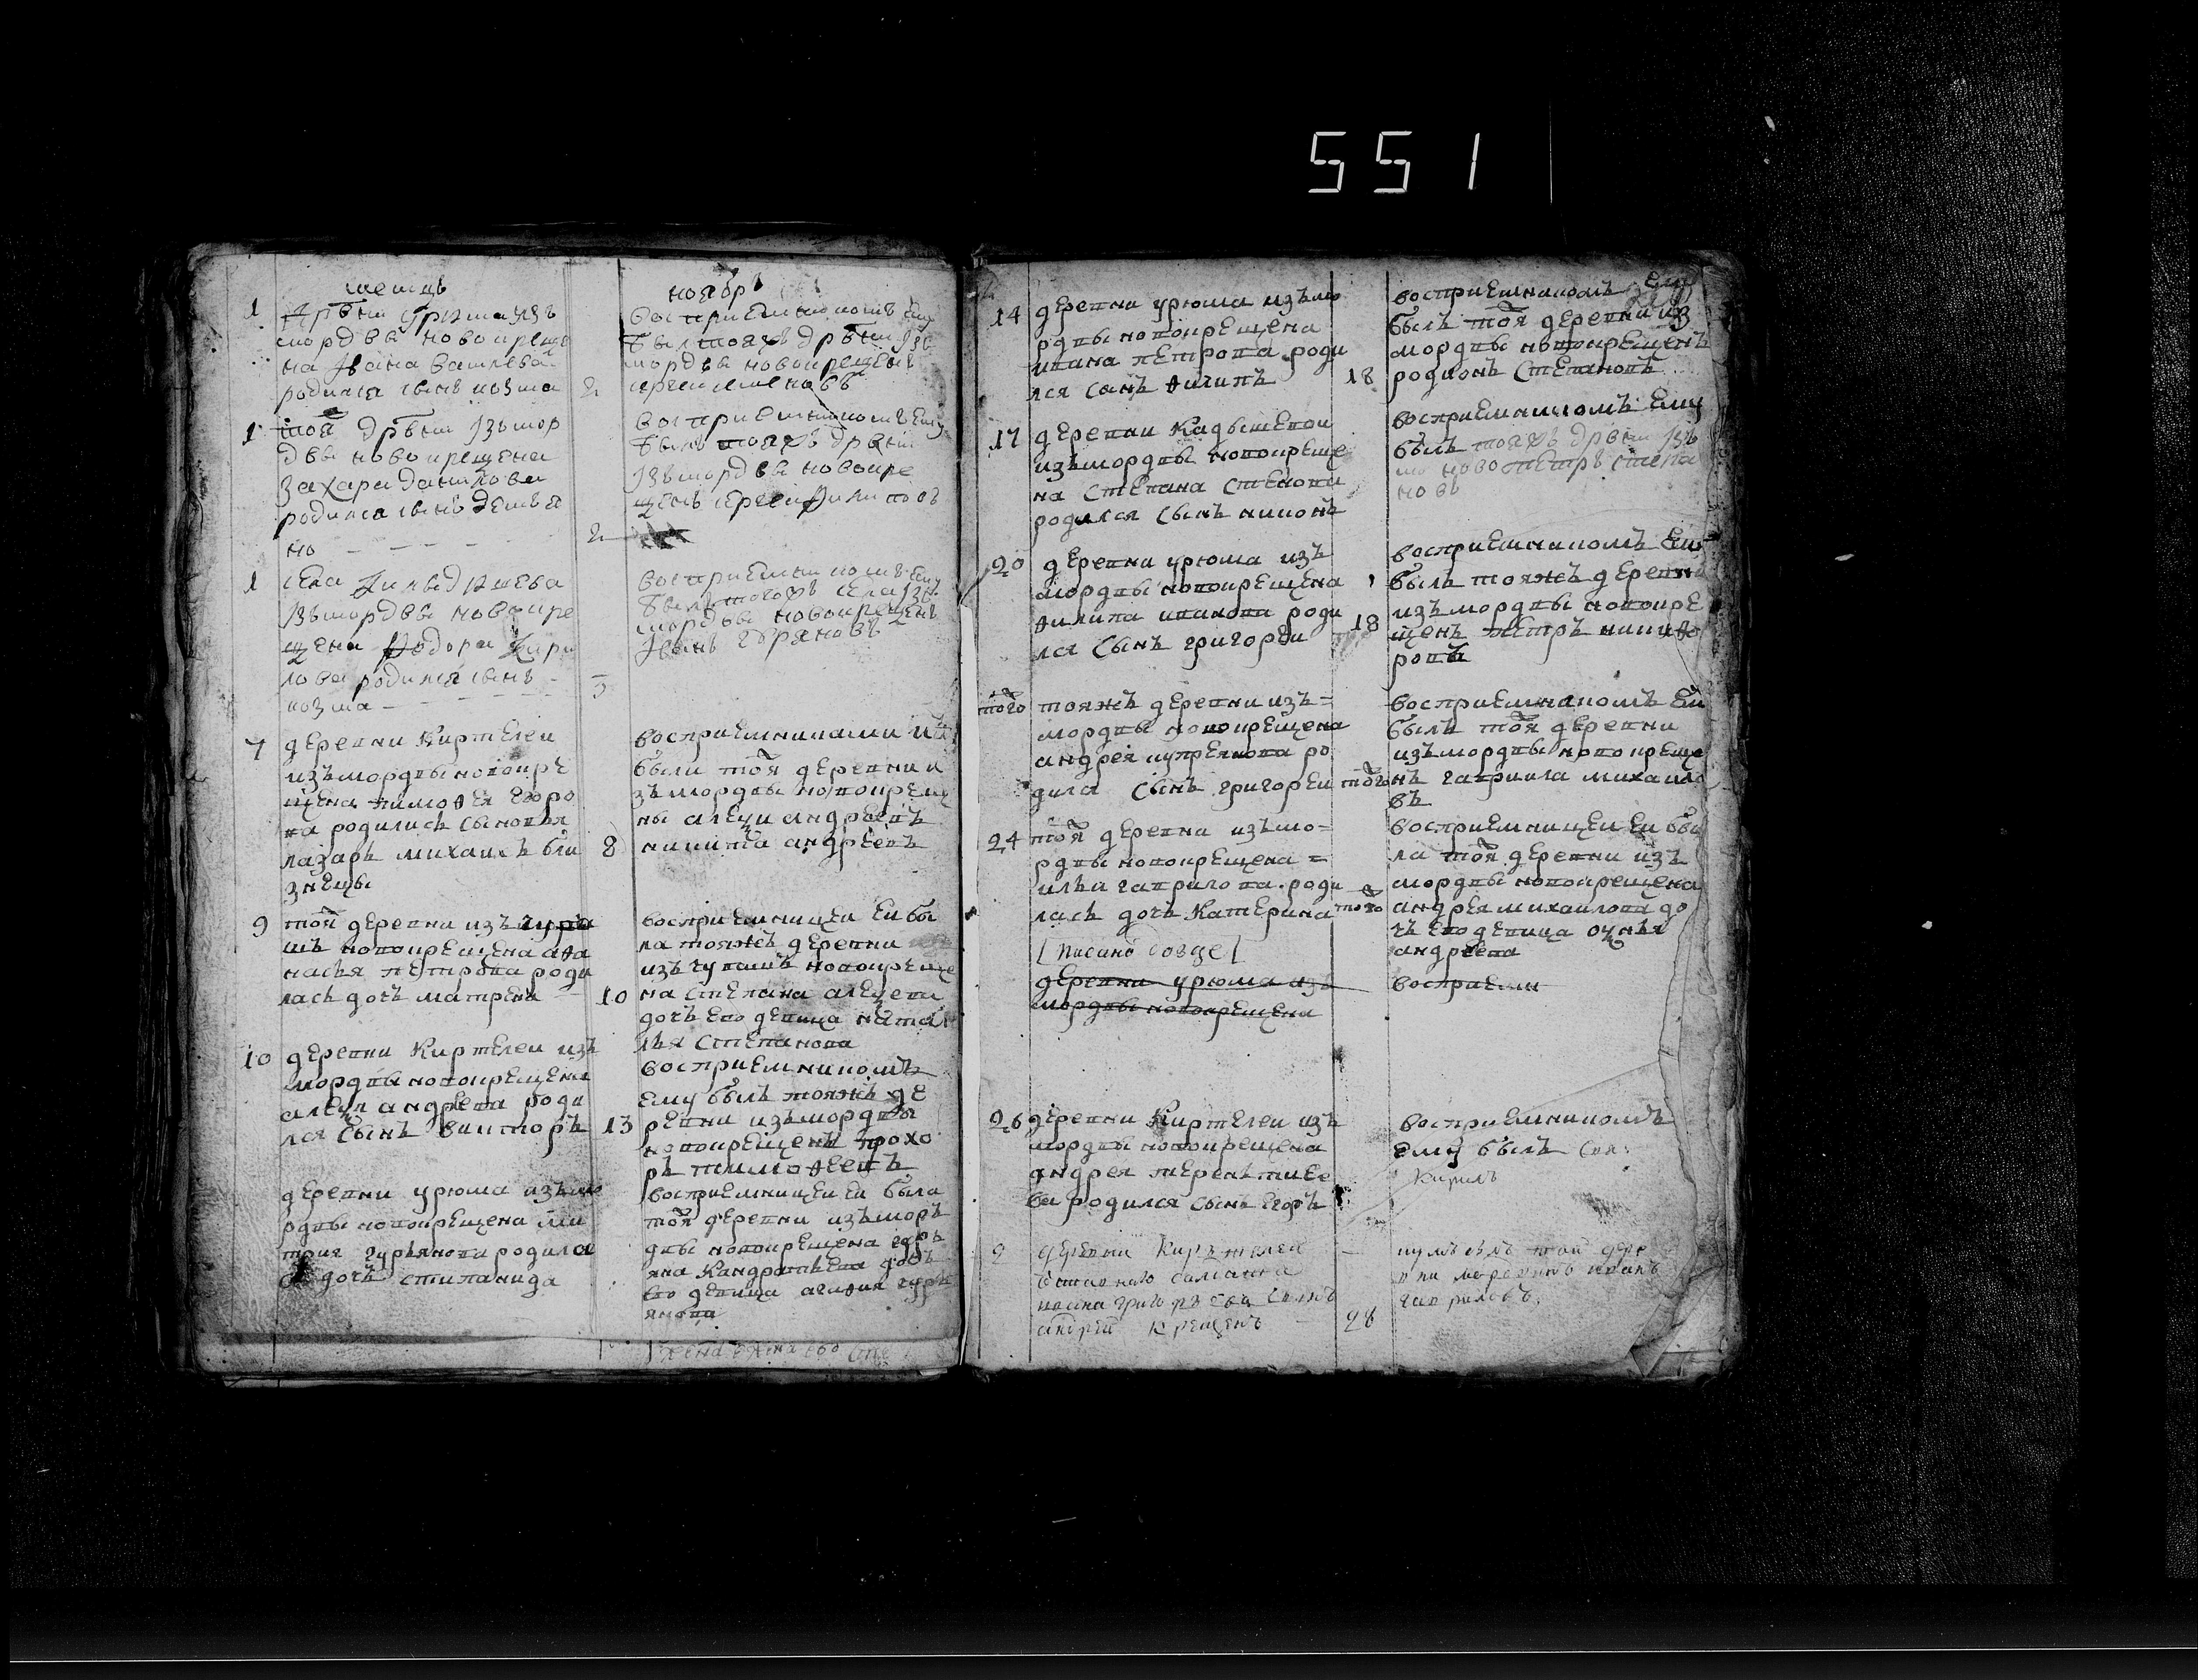 551
месяцъ
ноябрь
1
дрвни урюма изъ
мордвы новокреще
на Ивана
родился сынъ козма
2
восприемникомъ ему
былъ тояжъ дрвни изъ
мордвы новокрещенъ
сергеи семеновъ
1
тоя дрвни изъ мор
двы новокрещена
захара данилова
родился сынъ демья
но
2
восприемникомъ ему
былъ тояжъ дрвни
изъ мордвы новокре
щенъ сергеи филиповъ
1
села
изъ мордвы новокре
щена Федора Кири
лова родился сынъ
козма
3
восприемникомъ ему
былъ тогожъ села изъ
мордвы новокрещенъ
Иванъ
7
деревни Киртелеи
изъ мордвы новокре
щена тимофея егоро
ва родились сыновья
лазарь михаилъ бли
знецы
8
восприемниками их
были тоя деревни и
зъ мордвы новокрещ
ны алеѯи андреевъ
никита андреевъ
9
тоя деревни изъ чува
шъ новокрещена афа
насья петрова роди
лась дочь матрена
10
восприемницеи еи бы
ла тояжъ деревни
изъ чувашъ новокреще
на степана алеѯева
дочь его девица ната
лья степанова
10
деревни Киртелеи изъ
мордвы новокрещена
алеѯя андреева роди
лся сынъ викторъ
13
восприемникомъ
ему былъ тояжъ де
ревни изъ мордвы
новокрещенъ прохо
ръ тимофеевъ
деревни урюма изъ мо
рдвы новокрещена ми
трия гурьянова родила
сь дочь стипанида
восприемницеи еи была
тоя деревни изъ моръ
двы новокрещена
яна Кандратьева дочь
его девица агафия гурь
янова
14
деревни урюма изъ мо
рдвы новокрещена
ивана петрова роди
лся санъ филипъ
18
восприемникомъ ему
былъ тоя деревни из
мордвы новокрещенъ
родионъ степановъ
17
деревни Кадышевои
изъ мордвы новокреще
на степана
родился сынъ никонъ
восприемникомъ ему
былъ тояжъ дрвни изъ
мо ново петръ степа
новъ
20
деревни урюма изъ
мордвы новокрещена
филипа иванова роди
лся сынъ григореи
18
восприемникомъ ему
былъ тояжъ деревни
изъ мордвы новокре
щенъ петръ никифо
ровъ
того
тояжъ деревни изъ=
мордвы новокрещена
андрея куприянова ро
дился сынъ григореи
того
восприемникомъ еи
былъ тоя деревни
изъ мордвы новокреще
нъ гавриила михаило
въ
24
тоя деревни изъ мо=
рдвы новокрещена =
ильи гаврилова роди
лась дочь Катерина
[писано созде]
того
восприемницеи еи бы
ла тоя деревни изъ
мордвы новокрещена
андрея михаилова до
чъ его девица
андреева
деревни урюма изъ
мордвы новокрещена
восприемни
26
деревни Киртелеи изъ
мордвы новокрещена
андрея терентиее
ва родился сынъ егоръ
восприемникомъ
ему былъ
Кирилъ
9
деревни Киртелеи
андреи крещенъ
28
кумъ былъ тои дере
вни мордвинъ иванъ
гавриловъ